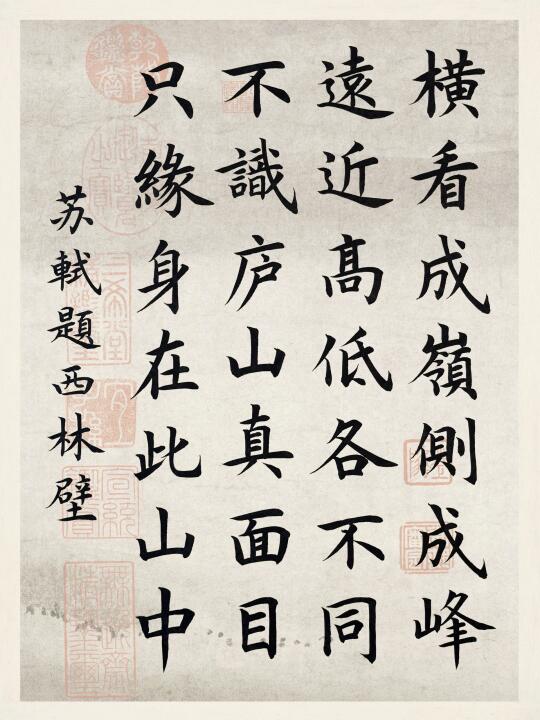 橫看成嶺側成峰
遠近高低各不同
不識庐山真面目
只緣身在此山中
苏軾題西林壁